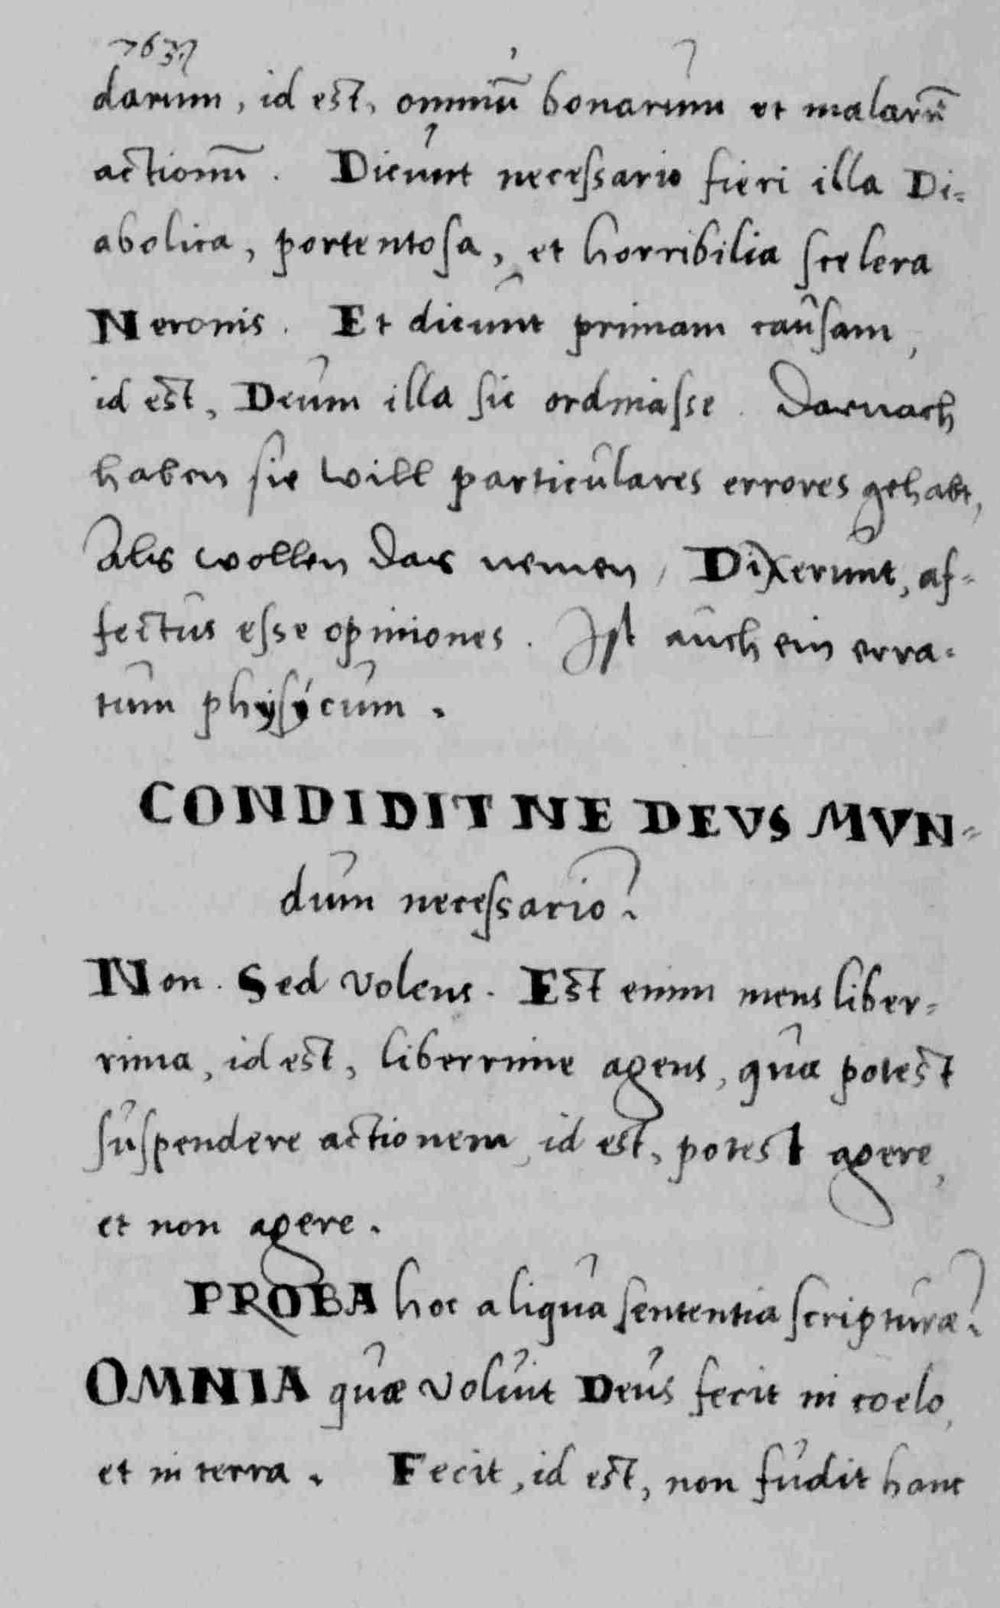 763
darum, id est, omniū bonarum et malarū
actionū. Dicunt necessario fieri illa Di-
abolica, portentosa, et horribilia scelera
Neronis. Et dicunt primam causam,
id est, Deum illa sic ordinasse. Darnach
haben sie vill particulares errores gehabt,
Als wollen das nemen, Dixerunt, af-
fectus esse opiniones. Ist auch ein erra-
tum physycum.
CONDIDIT NE DEVS MVN-
dum necessario?
Non. Sed volens. Est enim mens liber-
rima, id est, liberrime agens, quæ potest
suspendere actionem, id est, potest agere,
et non agere.
PROBA hoc aliqua sententia scripturæ?
OMNIA quæ voluit Deus fecit in coelo,
et in terra. Fecit, id est, non fudit hanc